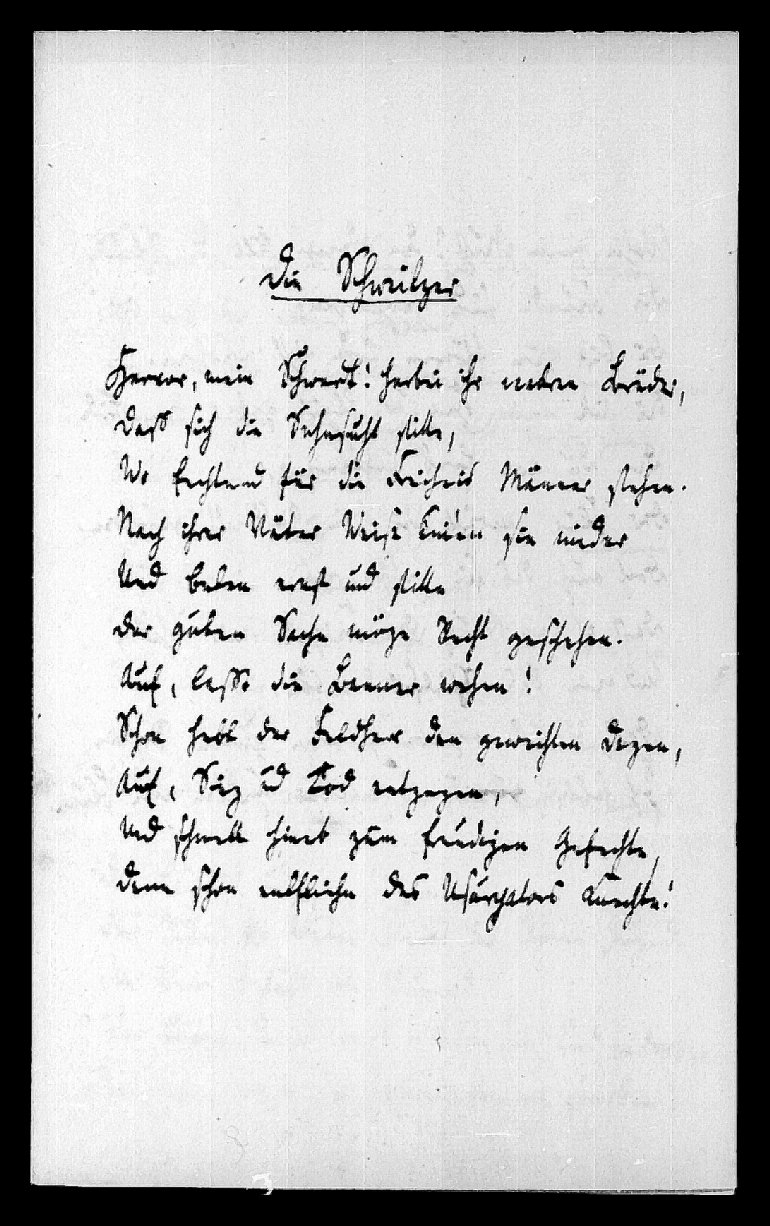 Die Schweitzer
Hervor, mein Schwert! herbei ihr wakren Brüder,
Dass sich die Sehnsucht stille,
Wo fechtend für die Freiheit Männer stehen.
Nach ihrer Väter Weise knien sie nieder
Und beten ernst und stille
Der guten Sache möge Recht geschehen.
Auf, lasst die Banner wehen!
Schon hebt der Feldherr den geweihten Degen,
Auf, Sieg und Tod entgegen,
Und schnell hinab zum freudigen Gefechte,
Denn schon entfliehn des Usurpators Knechte!